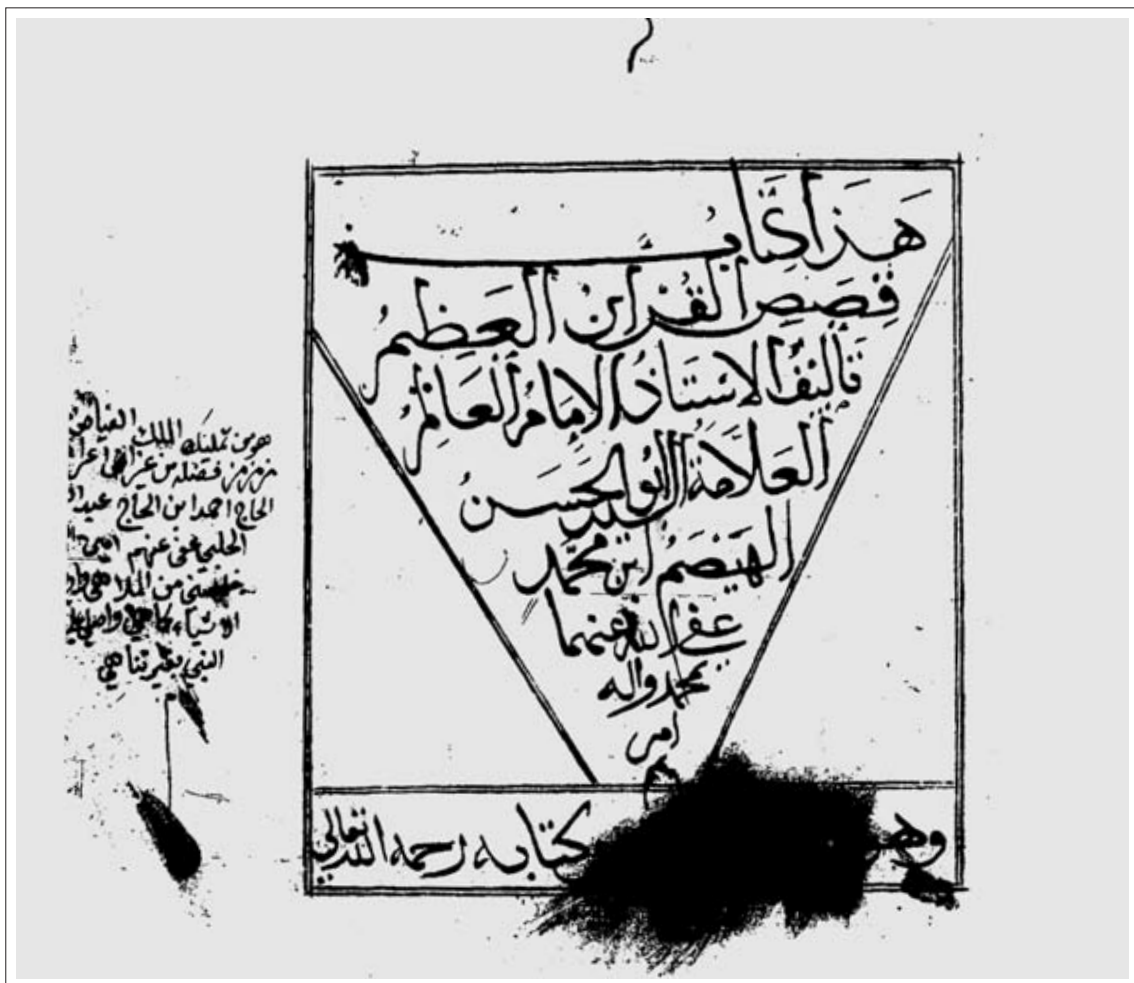 هَذَا كِتَابُ
قِصَصِ القُرْاٰنِ العَظِيمُ
تَالِيْفُ الاسْتَاذُ الاِمَامُ العَالِمُ
العَلَّامَةُ السيد ابو الحَسَن
الهَيْصَمُ ابن محمّد
عفى الله عنهما
بمحمد واله
امين
وهو كتابه رحمه الله تعالى
هو من تمليك الملك
من فضله من
الحاج احمد ابن الحاج
الحلبي عفى عنهم امين
من الملاهي
الاشياء كما هي
النبي بغير تناهي